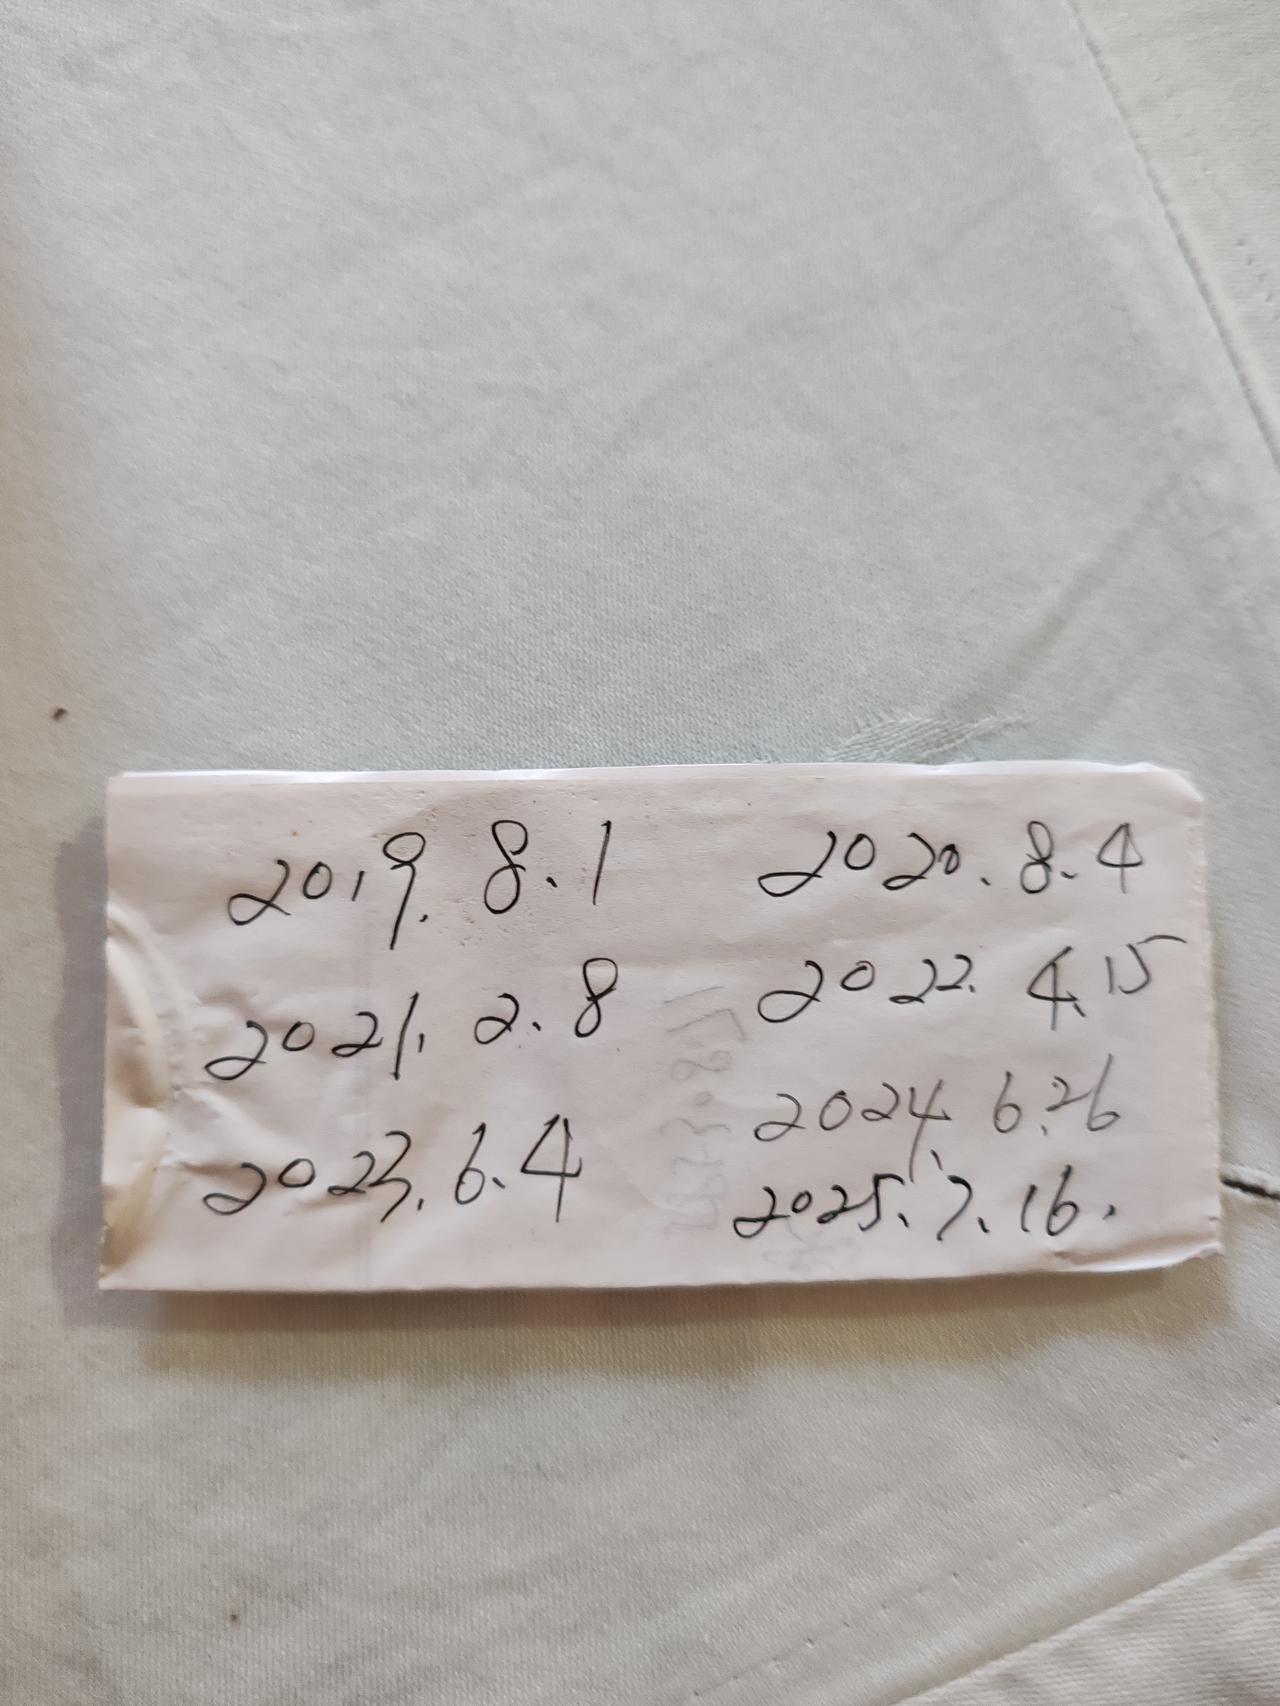 2019. 8.1 2020. 8.4
2021. 2.8 2022. 4.15
2023. 6.4 2024. 6.26
2025. 7. 16.